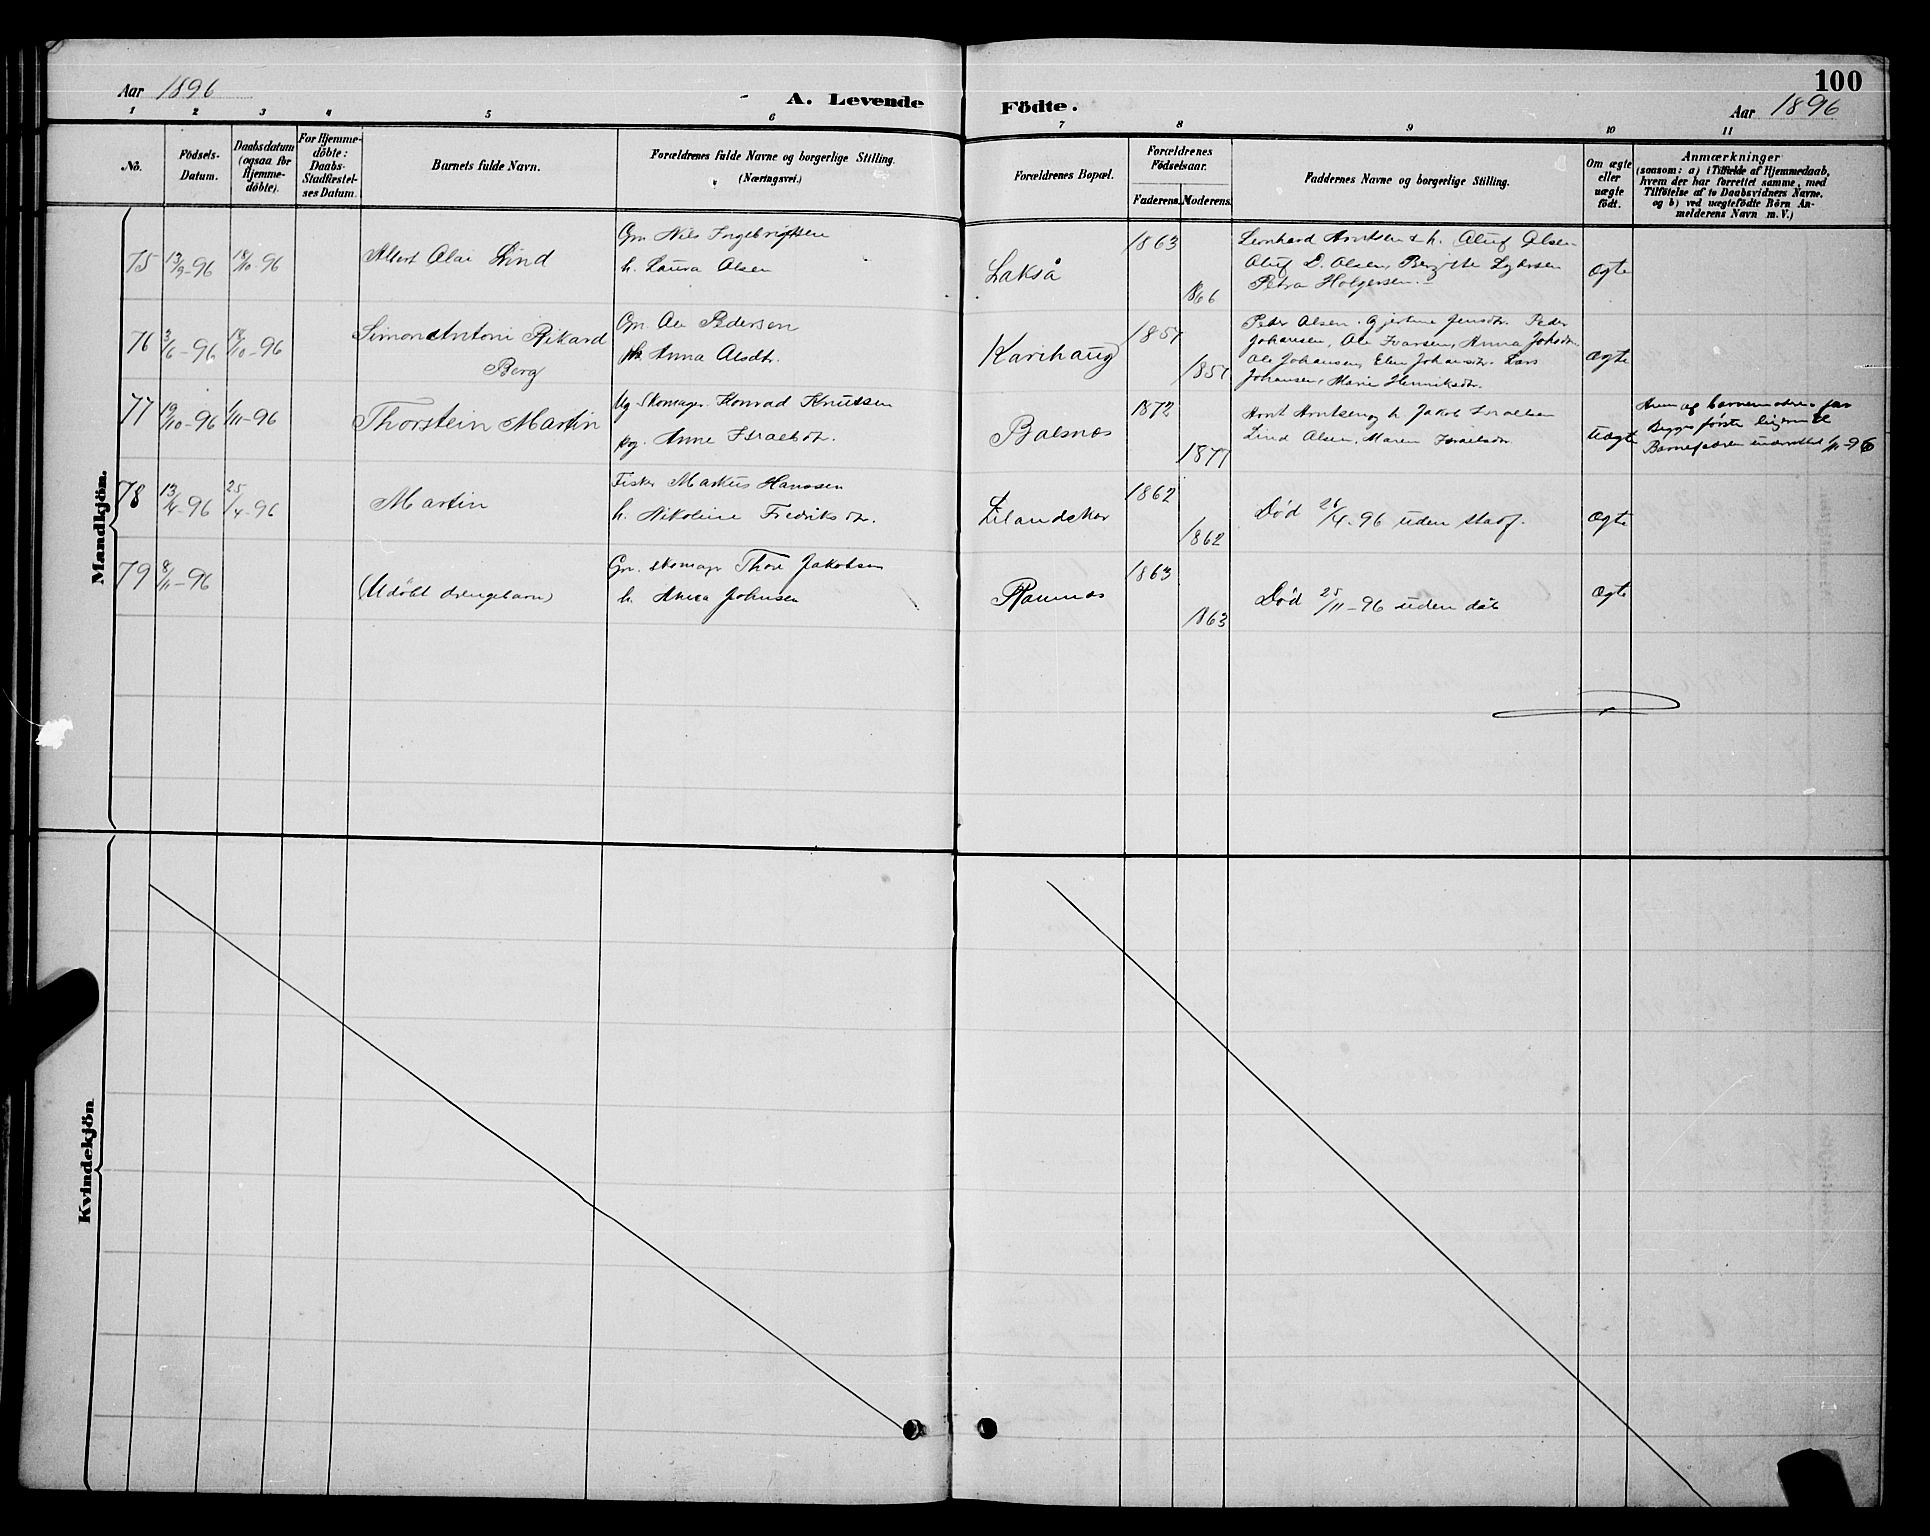 100
Aar 1896
A. Levende
Födte.
Aar 1896
1 2 3 4 5 6 7 8 9 10 11
No.
Födsels-
Datum.
Daabsdatum
(ogsaa for
Hjemme-
döbte).
For Hjemme-
döbte:
Daabs-
Stadfæstel-
ses Datum.
Barnets fulde Navn.
Forældrenes fulde Navne og borgerlige Stilling.
(Næringsvei.)
Forældrenes Bopæl.
Forældrenes
Födselsaar.
Faderens. Moderens.
Faddernes Navne og borgerlige Stilling.
Om ægte
eller
uægte
født.
Anmærkninger
(saasom: a) i Tilfælde af Hjemmedaab,
hvem der har forrettet samme, med
Tilföielse af to Daabsvidners Navne.
og b) ved uægtefödte Börn An-
melderens Navn m. V.)
Mandkjön.
75 13/9-96 18/10-96
Albert Olai Lind
Gm. Nils Ingebrigtsen
h. Laura Olsen
Lakså
1863
1866
Leonhard Arntsen & h. Oluf Olsen
Oluf D. Olsen, Bergitte
Petra Holgersen.
Ægte
76 3/6-96 18/10-96
Simon Antoni Rikard
Berg
Gm. Ole Pedersen
h. Anna Olsdtr.
Karihaug
1857
1857
Peder Olsen, Gjertine Jensdtr. Peder
Johansen, Ole Ivarsen, Anna
Ole Johansen, Elen Johansdtr. Lars
Johansen, Marie Henriksdtr.
Ægte
77 19/10-96 1/11-96
Thorstein Martin
Ug. Skomager Konrad Knutsen
pig. Anne Israelsdtr.
Balsnes
1872
1877
Arnt Arntsen og h. Jakob Israelsen
Lind Olsen, Maren Israelsdtr.
Uægte
Anm. af barnemoderens far
Begges første leiermaal
Barnefaderen indmeldt 1/11-96
78 13/4-96 25/4-96
Martin
Fisker Markus Hanssen
h. Nikoline Fredriksdtr.
Lilandskar
1862
1862
Død 26/4-96 uden stadf.
Ægte
79 8/11-96
(Udöbt drengebarn)
Gm. skomager Thore Jakobsen
h. Anna Johnsen
Ramnes
1863
1863
Død 25/11-96 uden dåb
Ægte
Kvindekjön